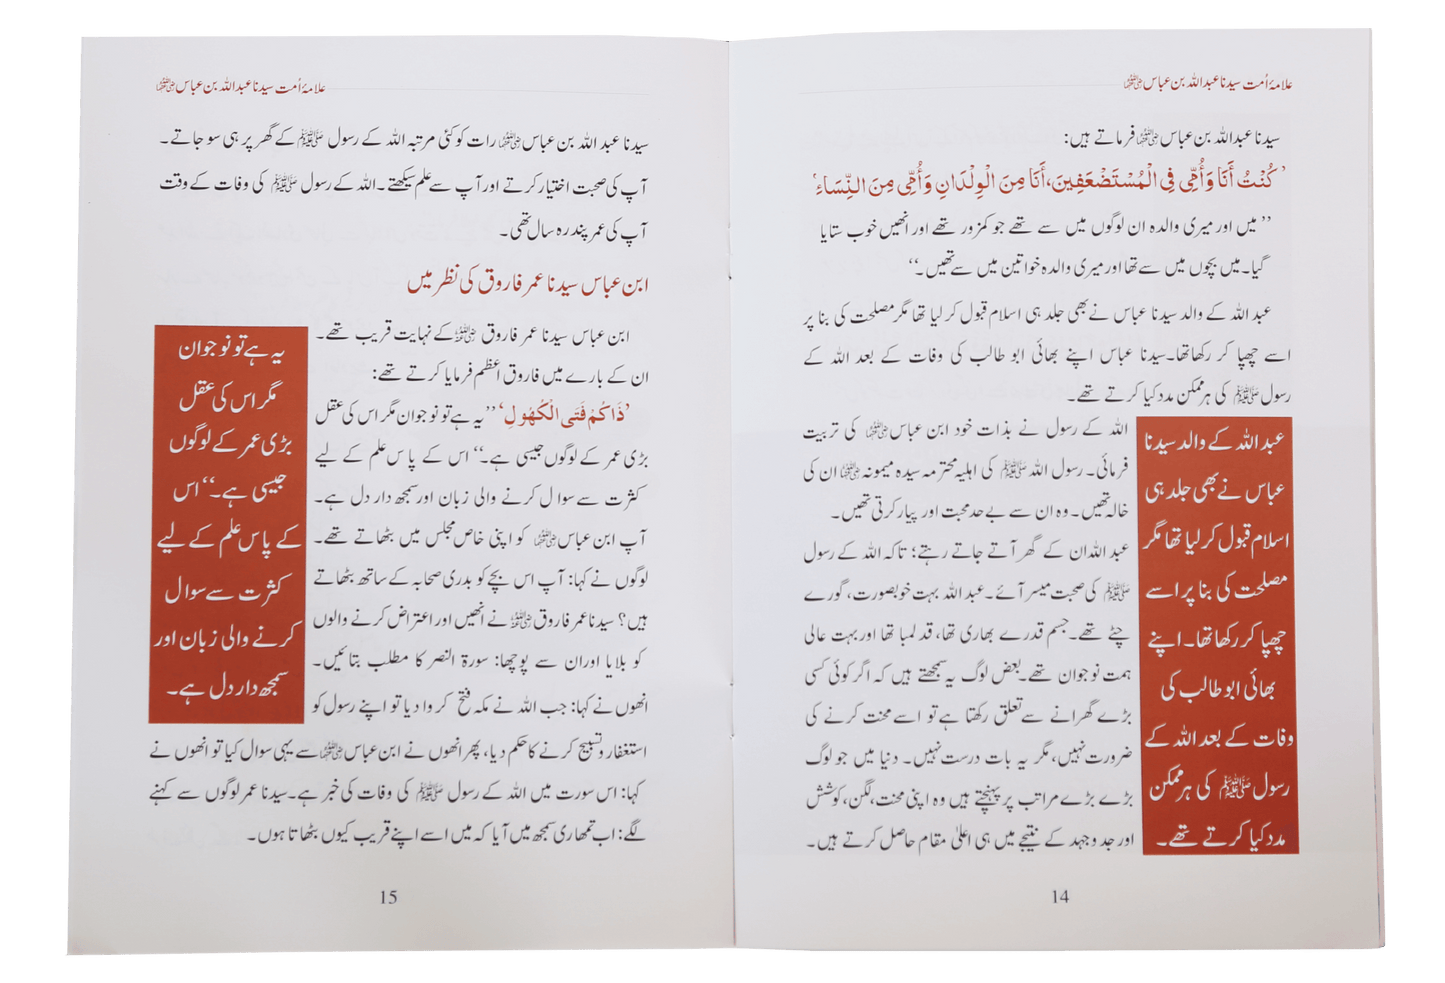 علامۂ اُمت سیدنا عبداللہ بن عباس رضی اللہ عنہما
سیدنا عبداللہ بن عباس رضی اللہ عنہما فرماتے ہیں:
’كُنْتُ أَنَا وَأُمِّي فِي الْمُسْتَضْعَفِينَ، أَنَا مِنَ الْوِلْدَانِ وَأُمِّي مِنَ النِّسَاءِ‘
’’میں اور میری والدہ ان لوگوں میں سے تھے جو کمزور تھے اور انھیں خوب ستایا
گیا۔ میں بچوں میں سے تھا اور میری والدہ خواتین میں سے تھیں۔‘‘
عبداللہ کے والد سیدنا عباس نے بھی جلد ہی اسلام قبول کر لیا تھا مگر مصلحت کی بنا پر
اسے چھپا کر رکھا تھا۔ سیدنا عباس اپنے بھائی ابو طالب کی وفات کے بعد اللہ کے
رسول ﷺ کی ہر ممکن مدد کیا کرتے تھے۔
اللہ کے رسول نے بذات خود ابن عباس رضی اللہ عنہما کی تربیت
فرمائی۔ رسول اللہ ﷺ کی اہلیہ محترمہ سیدہ میمونہ رضی اللہ عنہا ان کی
خالہ تھیں۔ وہ ان سے بے حد محبت اور پیار کرتی تھیں۔
عبداللہ ان کے گھر آتے جاتے رہتے؛ تاکہ اللہ کے رسول
ﷺ کی صحبت میسر آئے۔ عبداللہ بہت خوبصورت، گورے
چٹے تھے۔ جسم قدرے بھاری تھا، قد لمبا تھا اور بہت عالی
ہمت نوجوان تھے۔ بعض لوگ یہ سمجھتے ہیں کہ اگر کوئی کسی
بڑے گھرانے سے تعلق رکھتا ہے تو اسے محنت کرنے کی
ضرورت نہیں، مگر یہ بات درست نہیں۔ دنیا میں جو لوگ
بڑے بڑے مراتب پر پہنچتے ہیں وہ اپنی محنت، لگن، کوشش
اور جدوجہد کے نتیجے میں ہی اعلیٰ مقام حاصل کرتے ہیں۔
عبداللہ کے والد سیدنا
عباس نے بھی جلد ہی
اسلام قبول کر لیا تھا مگر
مصلحت کی بنا پر اسے
چھپا کر رکھا تھا۔ اپنے
بھائی ابو طالب کی
وفات کے بعد اللہ کے
رسول ﷺ کی ہر ممکن
مدد کیا کرتے تھے۔
14
علامۂ اُمت سیدنا عبداللہ بن عباس رضی اللہ عنہما
سیدنا عبداللہ بن عباس رضی اللہ عنہما رات کو کئی مرتبہ اللہ کے رسول ﷺ کے گھر پر ہی سو جاتے۔
آپ کی صحبت اختیار کرتے اور آپ سے علم سیکھتے۔ اللہ کے رسول ﷺ کی وفات کے وقت
آپ کی عمر پندرہ سال تھی۔
ابن عباس سیدنا عمر فاروق کی نظر میں
ابن عباس سیدنا عمر فاروق رضی اللہ عنہ کے نہایت قریب تھے۔
ان کے بارے میں فاروق اعظم فرمایا کرتے تھے:
’ذَاكُمْ فَتَى الْكُهُولِ‘ ’’یہ ہے تو نوجوان مگر اس کی عقل
بڑی عمر کے لوگوں جیسی ہے۔‘‘ اس کے پاس علم کے لیے
کثرت سے سوال کرنے والی زبان اور سمجھ دار دل ہے۔
آپ ابن عباس رضی اللہ عنہما کو اپنی خاص مجلس میں بٹھاتے تھے۔
لوگوں نے کہا: آپ اس بچے کو بدری صحابہ کے ساتھ بٹھاتے
ہیں؟ سیدنا عمر فاروق رضی اللہ عنہ نے انھیں اور اعتراض کرنے والوں
کو بلایا اور ان سے پوچھا: سورۃ النصر کا مطلب بتائیں۔
انھوں نے کہا: جب اللہ نے مکہ فتح کروا دیا تو اپنے رسول کو
استغفار و تسبیح کرنے کا حکم دیا، پھر انھوں نے ابن عباس رضی اللہ عنہما سے یہی سوال کیا تو انھوں نے
کہا: اس سورت میں اللہ کے رسول ﷺ کی وفات کی خبر ہے۔ سیدنا عمر لوگوں سے کہنے
لگے: اب تمھاری سمجھ میں آیا کہ میں اسے اپنے قریب کیوں بٹھاتا ہوں۔
یہ ہے تو نوجوان
مگر اس کی عقل
بڑی عمر کے لوگوں
جیسی ہے۔‘‘ اس
کے پاس علم کے لیے
کثرت سے سوال
کرنے والی زبان اور
سمجھ دار دل ہے۔
15